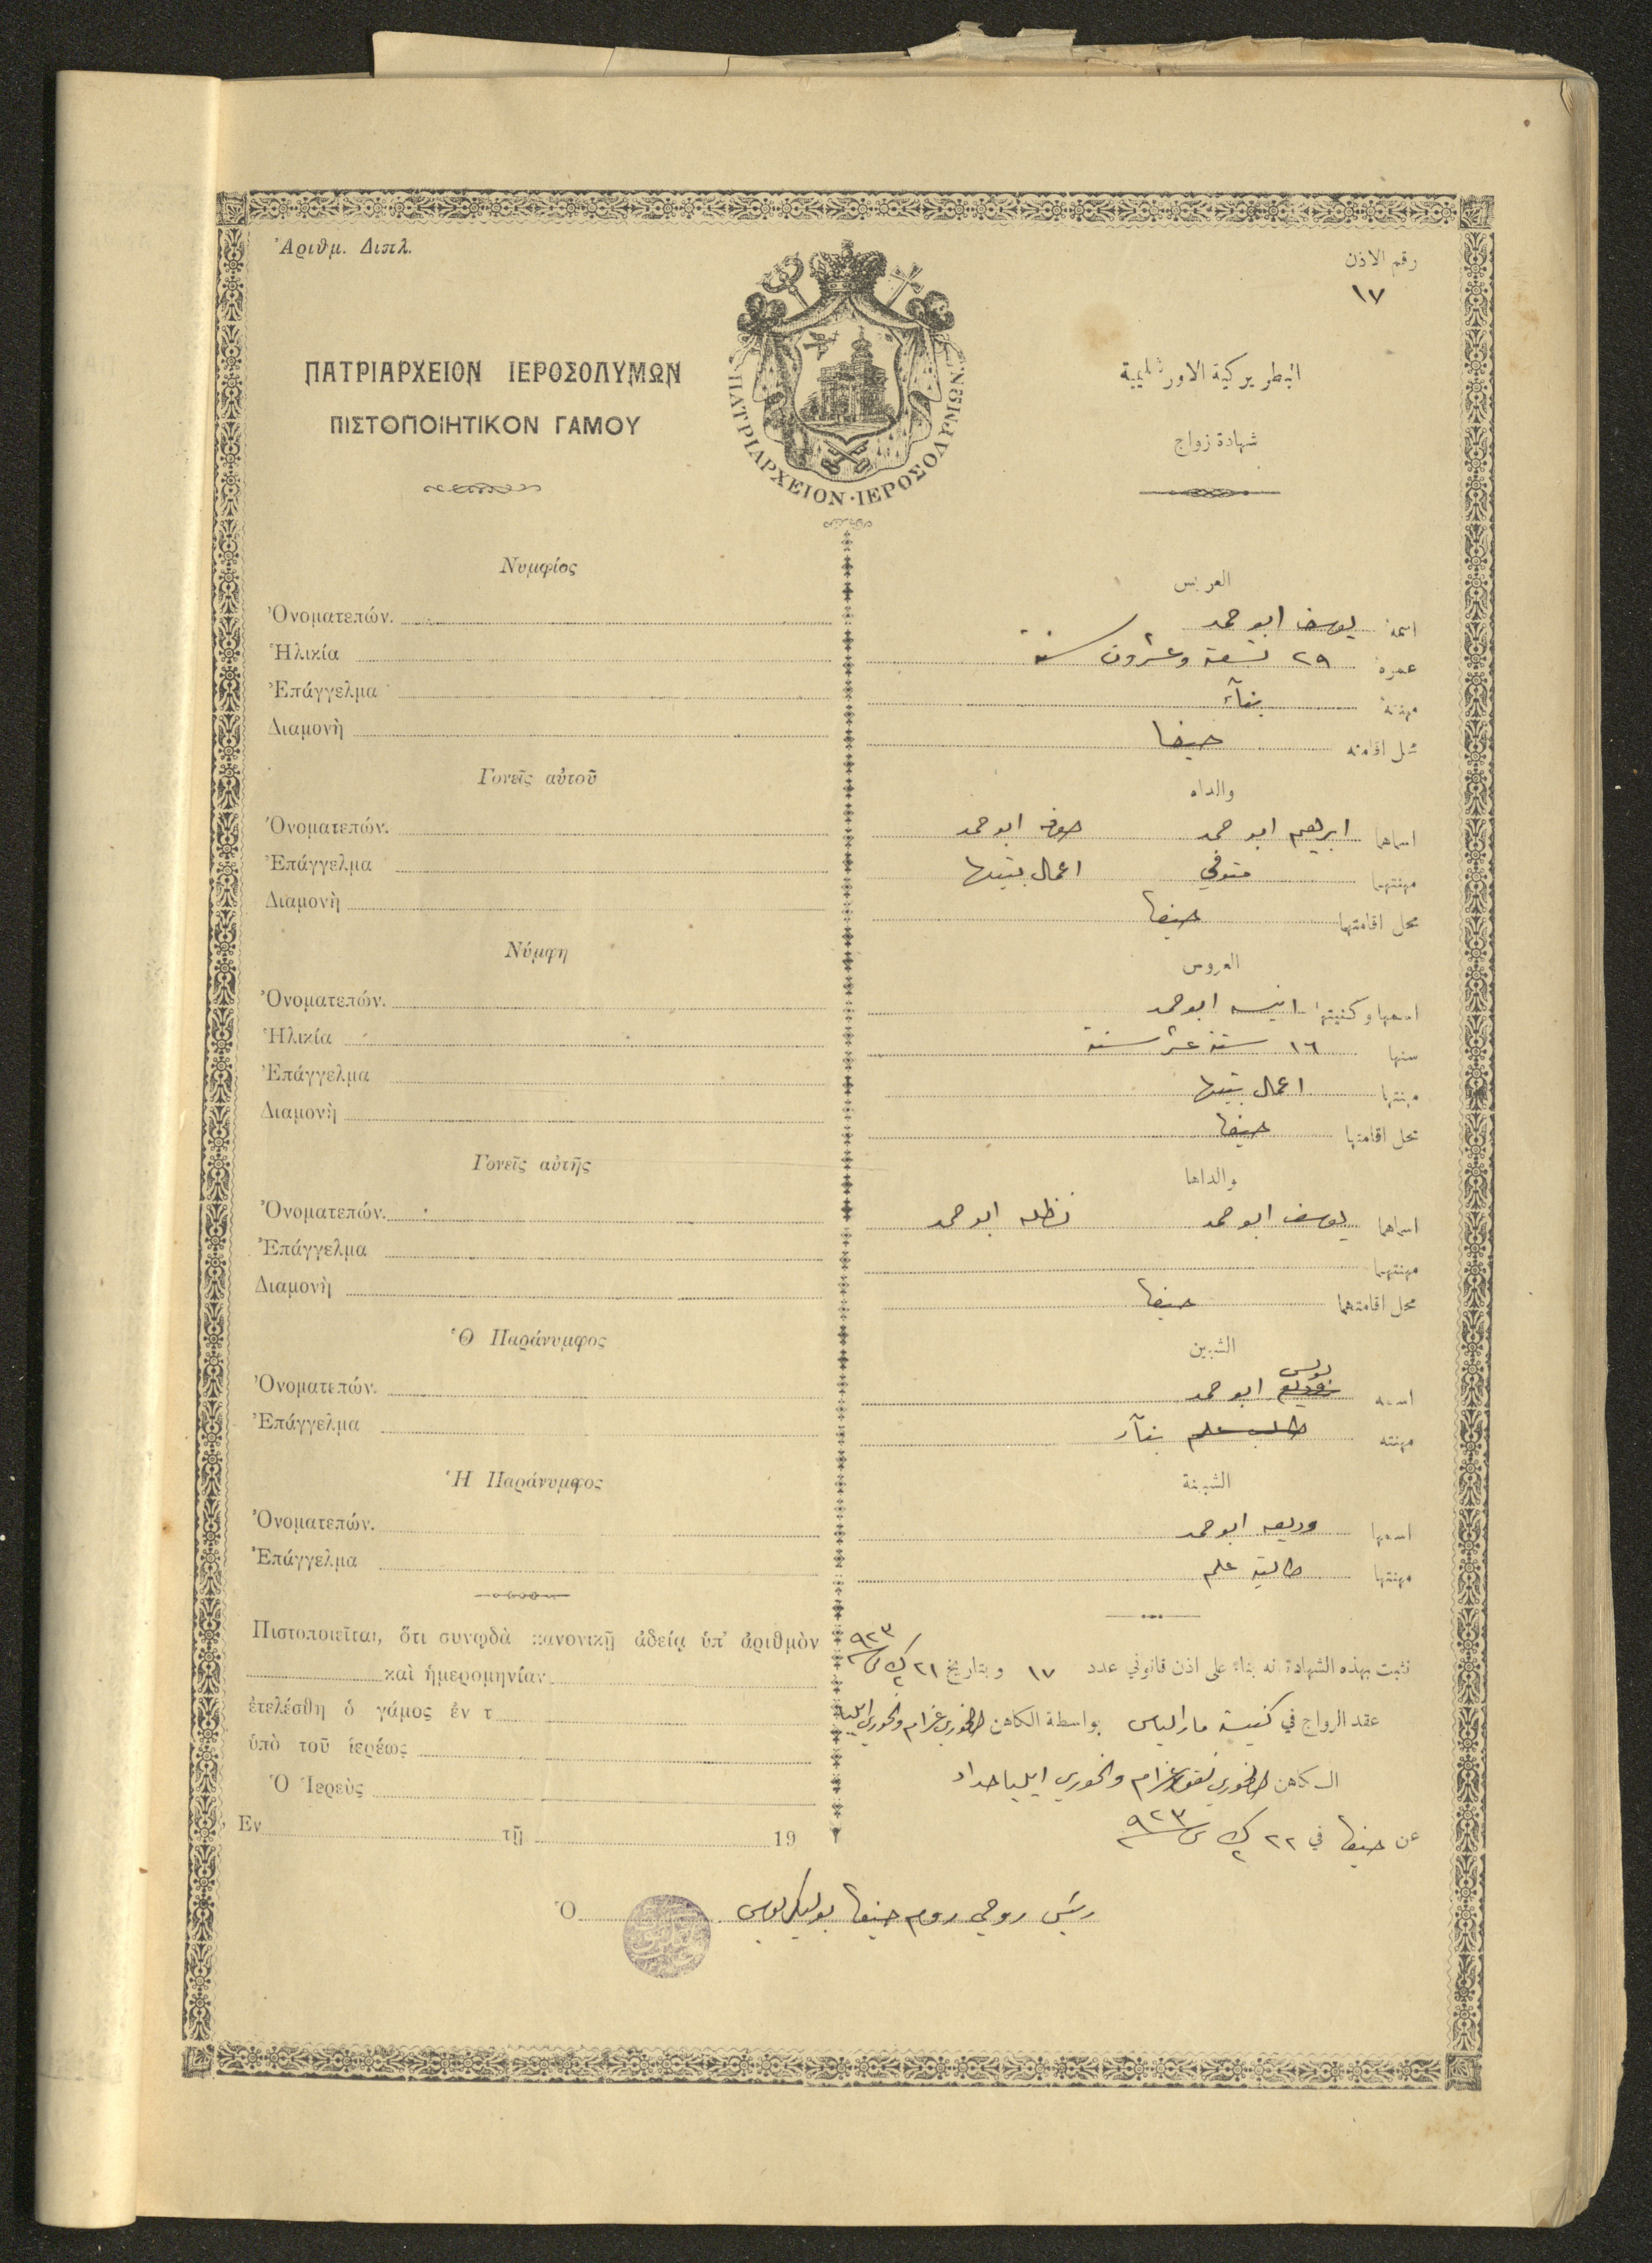 Ἀριθμ. Διπλ.
رقم الاذن
١٧
ΠΑΤΡΙΑΡΧΕΙΟΝ ΙΕΡΟΣΟΛΥΜΩΝ
ΠΙΣΤΟΠΟΙΗΤΙΚΟΝ ΓΑΜΟΥ
ΠΑΤΡΙΑΡΧΕΙΟΝ·ΙΕΡΟΣΟΛΥΜΩΝ
البطريركية الاورشليمية
شهادة زواج
Νυμφίος
Ὀνοματεπών.
Ἡλικία
Ἐπάγγελμα
Διαμονὴ
Γονεῖς αὐτοῦ
Ὀνοματεπών.
Ἐπάγγελμα
Διαμονὴ
Νύμφη
Ὀνοματεπών.
Ἡλικία
Ἐπάγγελμα
Διαμονὴ
Γονεῖς αὐτῆς
Ὀνοματεπών.
Ἐπάγγελμα
Διαμονὴ
Ὁ Παράνυμφος
Ὀνοματεπών.
Ἐπάγγελμα
Ἡ Παράνυμφος
Ὀνοματεπών.
Ἐπάγγελμα
Πιστοποιεῖται, ὅτι συνῳδὰ κανονικῇ ἀδείᾳ ὑπ' ἀριθμὸν
καὶ ἡμερομηνίαν
ἐτελέσθη ὁ γάμος ἐν τ
ὑπὸ τοῦ ἱερέως
Ὁ Ἱερεὺς
Ἐν τῇ 19
Ὁ
العريس
اسمه يوسف ابو حمد
عمره ٢٩ تسعة وعشرون سنة
مهنته بنآء
محل اقامته حيفا
والداه
اسماهما ابرهيم ابو حمد ابو حمد
مهنتهما متوفي اعمال بيتها
محل اقامتهما حيفا
العروس
اسمها وكنيتها انيسه ابو حمد
سنها ١٦ ستة عشر سنة
مهنتها اعمال بيتها
محل اقامتها حيفا
والداها
اسماهما يوسف ابو حمد نظله ابو حمد
مهنتهما
محل اقامتهما حيفا
الشبين
اسمه ابو حمد
مهنته طالب علم بنآء
الشبينة
اسمها وديعه ابو حمد
مهنتها طالبة علم
نثبت بهذه الشهادة انه بناء على اذن قانوني عدد ١٧ وبتاريخ ٢١ ك٢ س ٩٢٣
عقد الزواج في كنيسة مار الياس بواسطة الكاهن الخوري عزام والخوري ايليا
الكاهن الخوري عزام والخوري ايليا حداد
عن حيفا في ٢٢ ك٢ س ٩٢٣
رئيس روحي روم حيفا